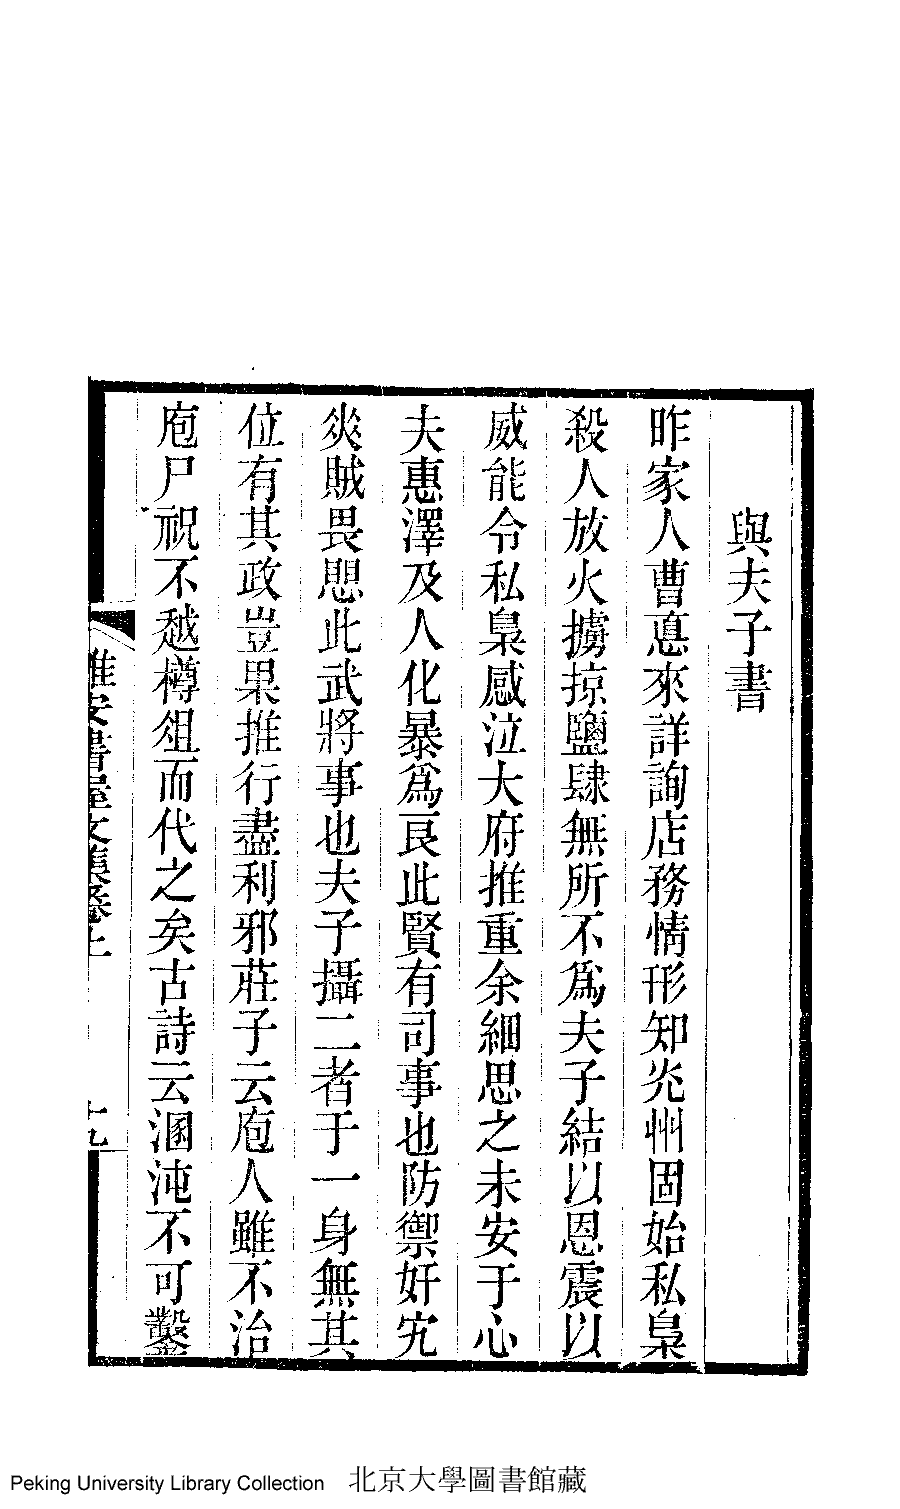 與夫子書
昨家人曹惪來詳詢店務情形知光州固始私梟
殺人放火擄掠鹽肆無所不爲夫子結以恩震以
威能令私梟感泣大府推重余細思之未安于心
夫惠澤及人化暴爲良此賢有司事也防禦奸宄
使賊畏愳此武將事也夫子攝二者于一身無其
位有其政豈果推行盡利邪莊子云庖人雖不治
庖尸祝不越樽俎而代之矣古詩云溷沌不可鑿
惟安書屋文集卷上
十九
Peking University Library Collection 北京大學圖書館藏